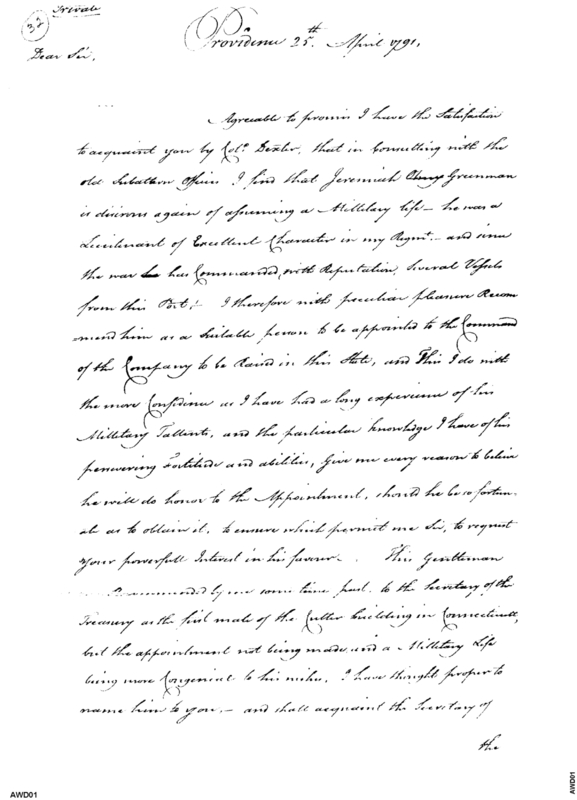 Private
32
Providence 25th. April 1791,
Dear Sir,
Agreeable to promis I have the Satisfaction
to acquaint you by Colo. Dexter, that in Consulting with the
old Subaltern Officers I find that Jeremiah Greenman
is disirous again of assuming a Millitary life — he was a
Lieutenant of Excellent Character in my Regmt. — and since
the war has Commanded, with Reputation, Several Vessels
from this Port; I therefore with peculiar pleasure Recom
mend him as a Suitable person to be appointed to the Command
of the Company to be Raised in this State, and This I do with
the more Confidence as I have had a long experience of his
Millitary Tallents, and the particular knowledge I have of his
persevering Fortitude and abilities, Give me every reason to believe
he will do honor to the Appointment, should he be so fortun-
ate as to obtain it, to ensure which permit me Sir, to request
your powerfull Interest in his favour. This Gentleman
Recommended by me some time past to the Secretary of the
Treasury as the first mate of the Cutter building in Connecticutt,
but the appointment not being made and a Millitary Life
being more Congenial to his wishes, I have thought proper to
name him to you, — and shall acquaint the Secretary of
the
AWD01
AWD01